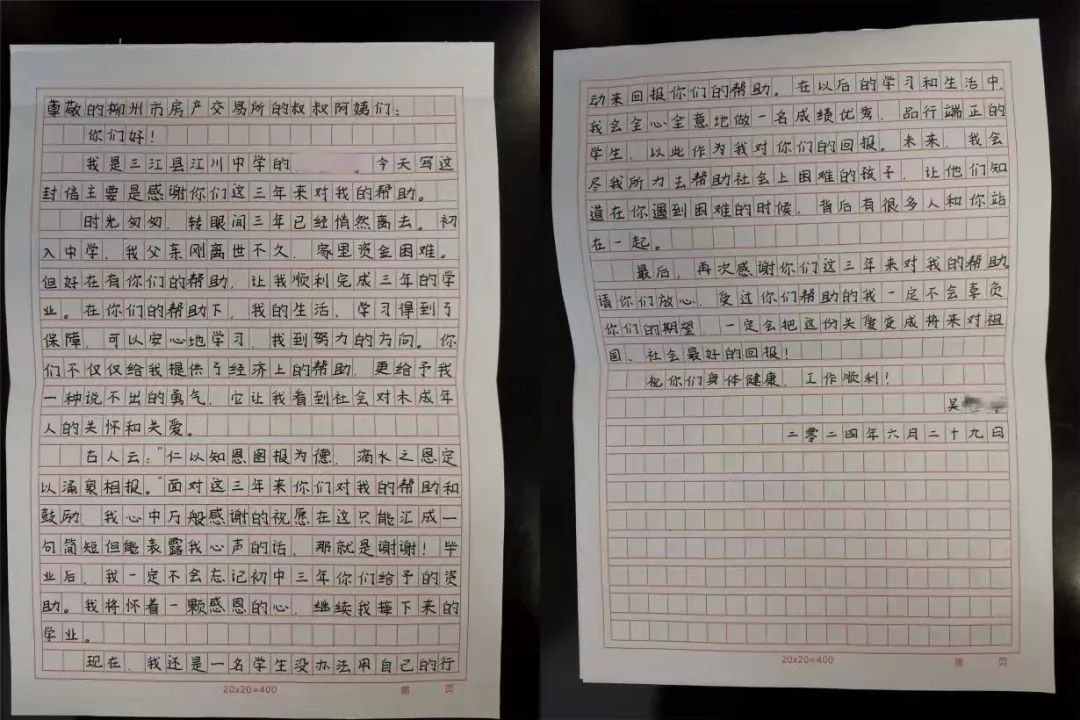 尊敬的柳州市房产交易所的叔叔阿姨们：
你们好！
我是三江县江川中学的 。今天写这
封信主要是感谢你们这三年来对我的帮助。
时光匆匆，转眼间三年已经悄然离去。初
入中学，我父亲刚离世不久，家里资金困难。
但好在有你们的帮助，让我顺利完成三年的学
业。在你们的帮助下，我的生活、学习得到了
保障，可以安心地学习，找到努力的方向。你
们不仅仅给我提供了经济上的帮助，更给予我
一种说不出的勇气，它让我看到社会对未成年
人的关怀和关爱。
古人云：“仁以知恩图报为德，滴水之恩定
以涌泉相报。”面对这三年来你们对我的帮助和
鼓励，我心中万般感谢的祝愿在这只能汇成一
句简短但能表露我心声的话，那就是谢谢！毕
业后，我一定不会忘记初中三年你们给予的资
助。我将怀着一颗感恩的心，继续我接下来的
学业。
现在，我还是一名学生没办法用自己的行
20x20=400 第 页
动来回报你们的帮助。在以后的学习和生活中，
我会全心全意地做一名成绩优秀，品行端正的
学生，以此作为我对你们的回报。未来，我会
尽我所力去帮助社会上困难的孩子，让他们知
道在你遇到困难的时候，背后有很多人和你站
在一起。
最后，再次感谢你们这三年来对我的帮助。
请你们放心，受过你们帮助的我一定不会辜负
你们的期望，一定会把这份关爱变成将来对祖
国、社会最好的回报！
祝你们身体健康，工作顺利！
吴
二零二四年六月二十九日
20x20=400 第 页